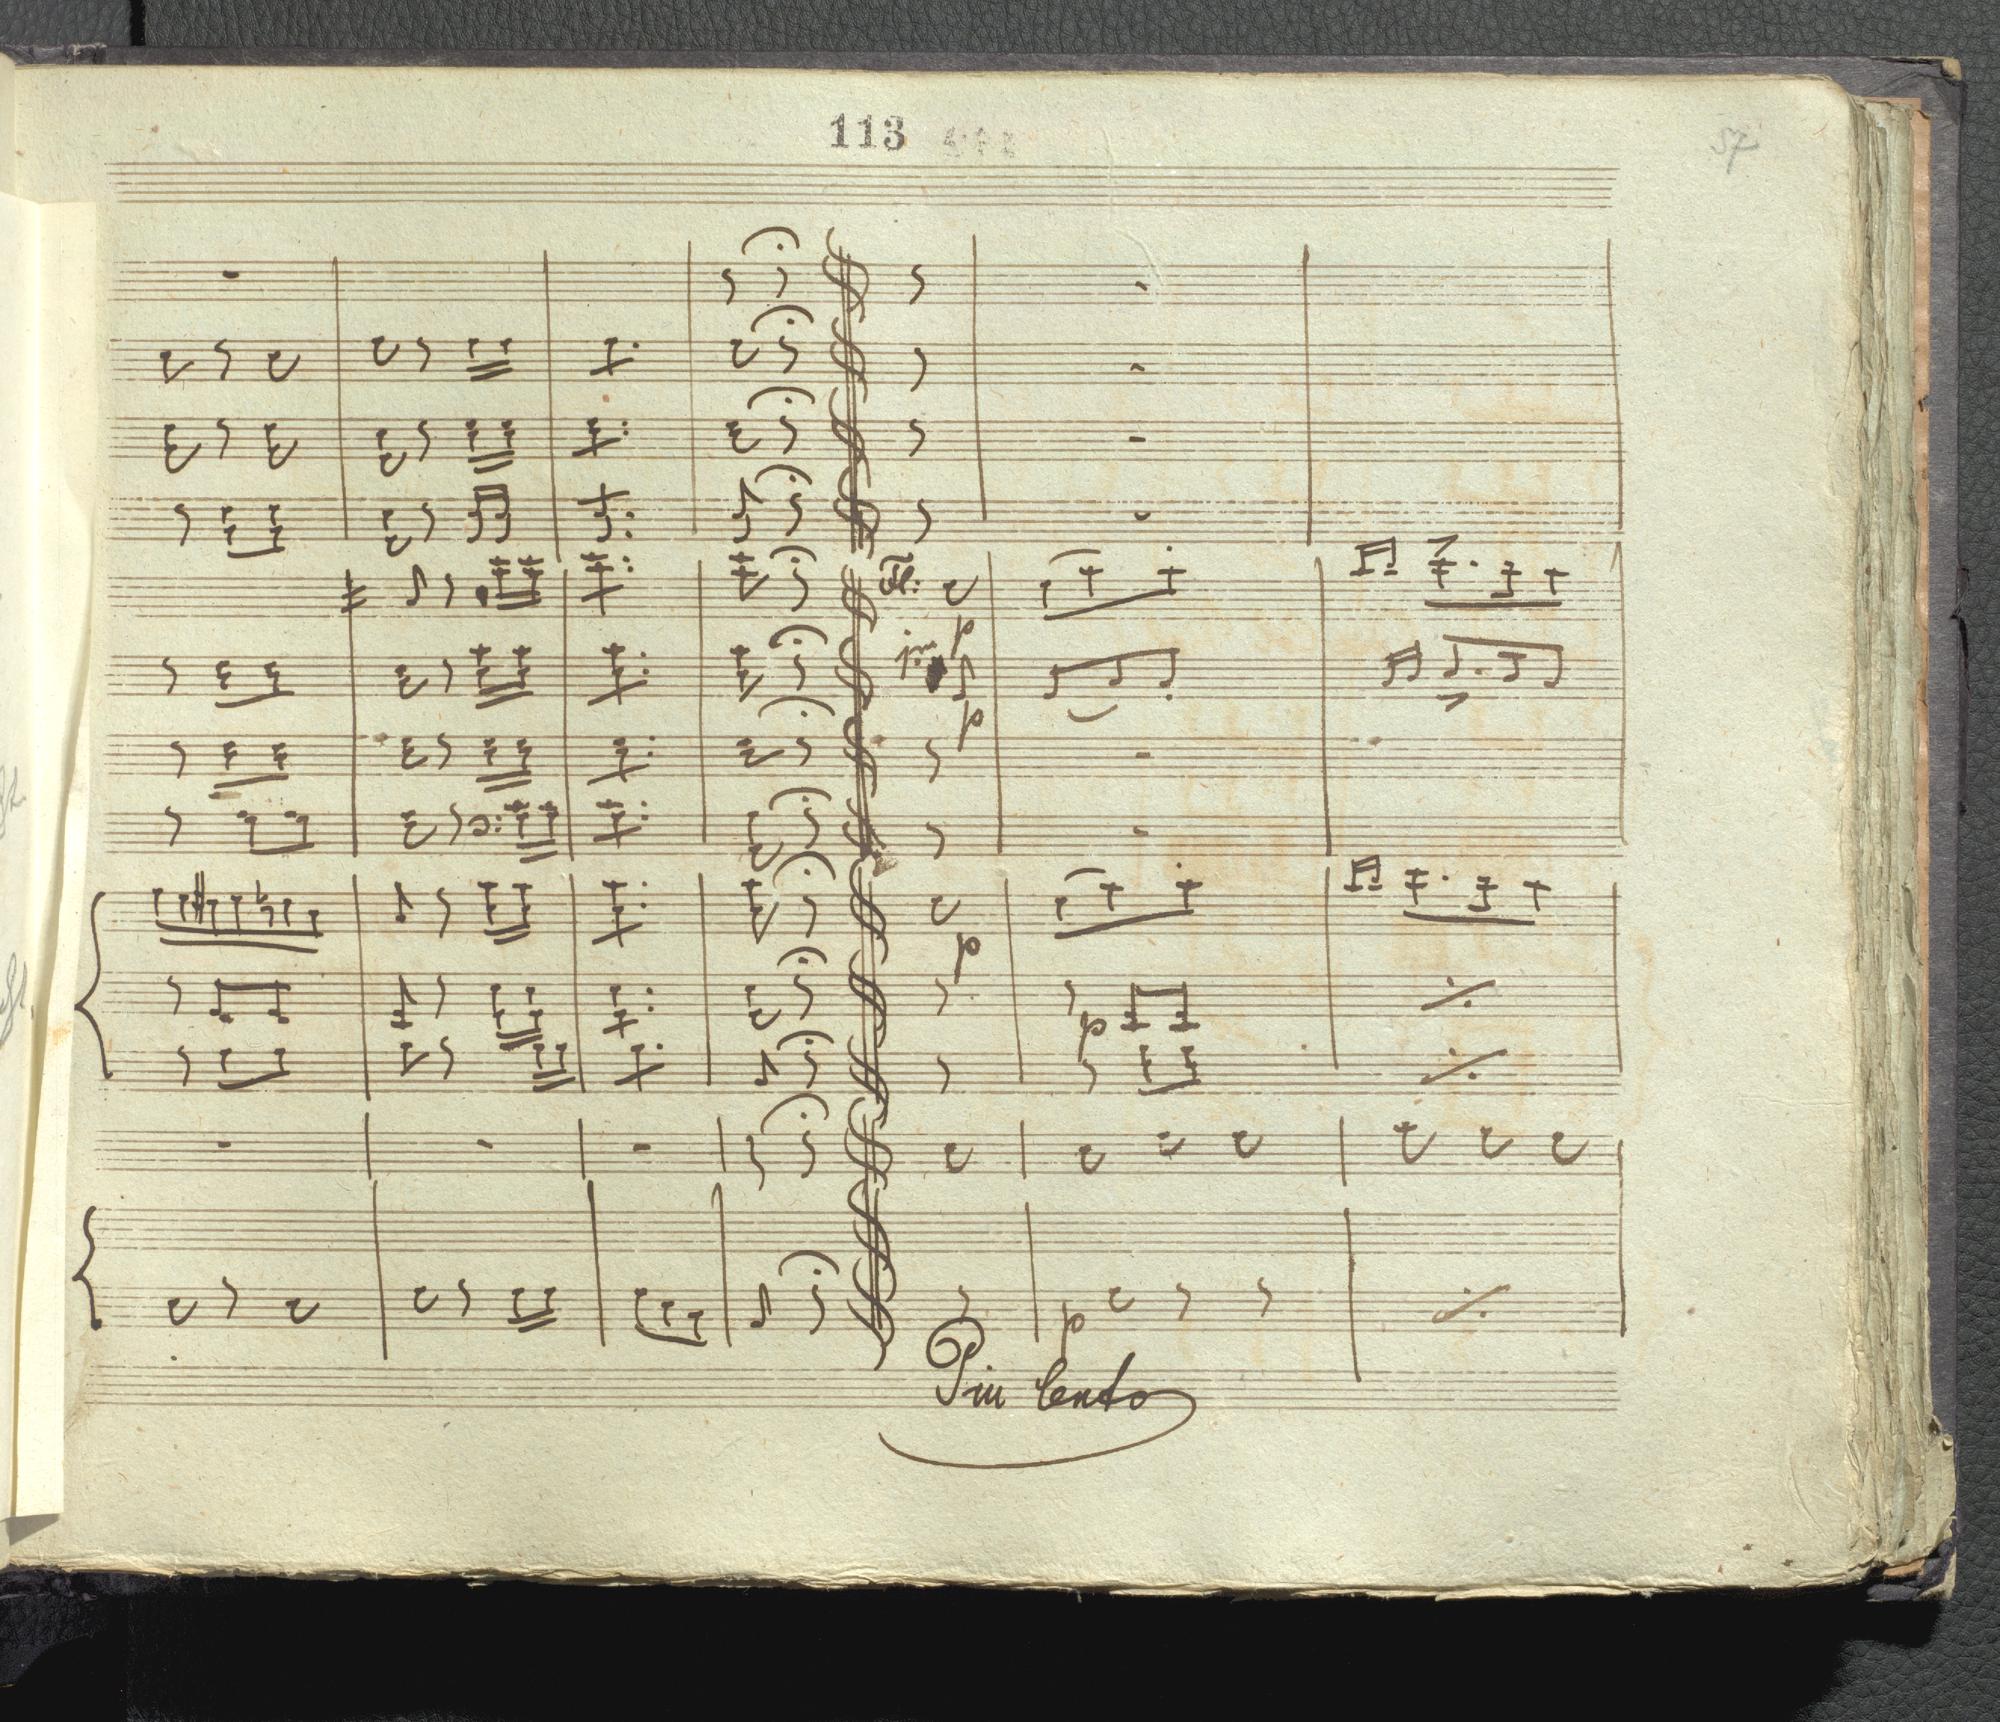 113
57
Fl:
p
p
p
p
p
Piu lento